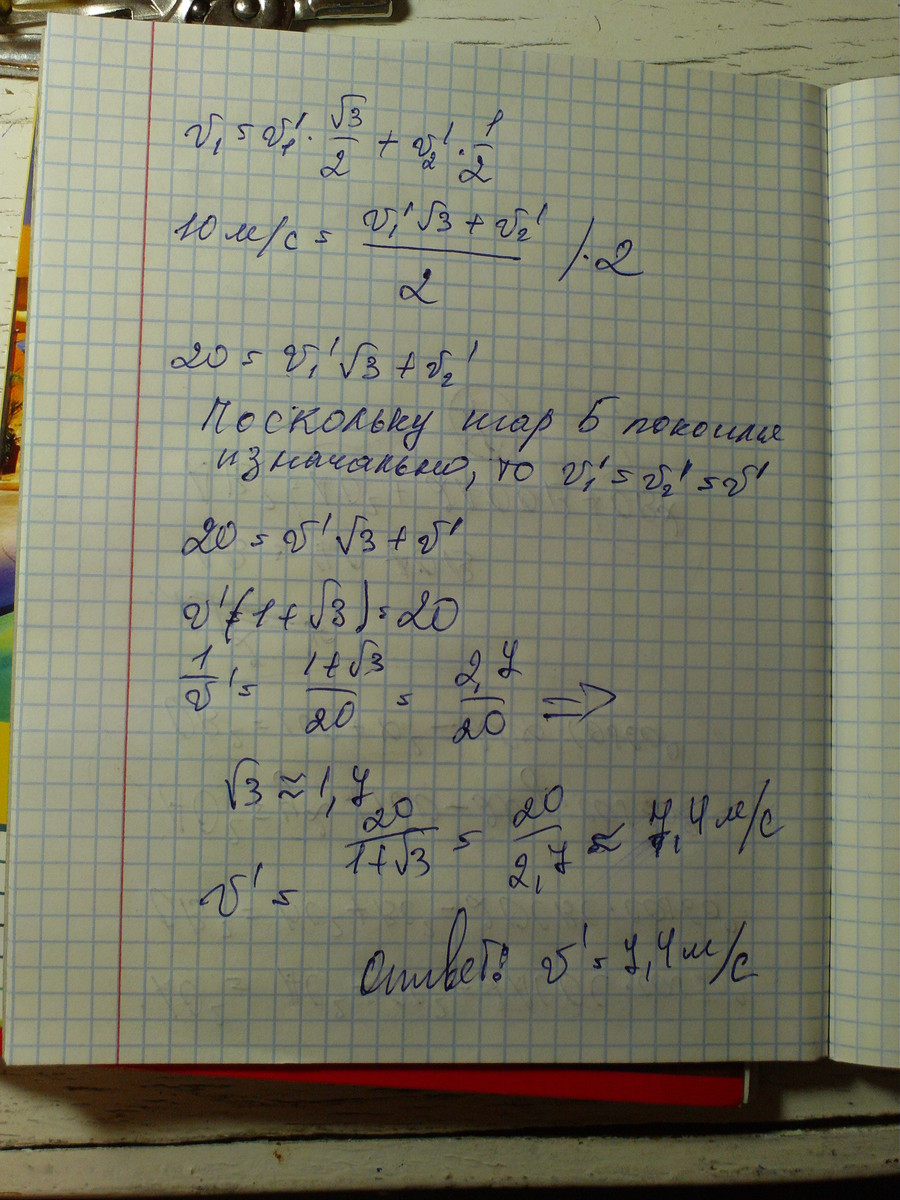 v₁ = v₁' · √3/2 + v₂' · 1/2
10 м/с = (v₁'√3 + v₂')/2 /·2
20 = v₁'√3 + v₂'
Поскольку шар Б покоился
изначально, то v₁' = v₂' = v'
20 = v'√3 + v'
v'(1+√3) = 20
1/v' = (1+√3)/20 = 2,7/20 ⇒
√3 ≈ 1,7
v' = 20/(1+√3) = 20/2,7 ≈ 7,4 м/с
Ответ: v' = 7,4 м/с